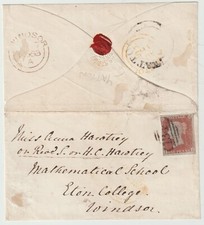 WINDSOR
Miss Anna Hawtrey
or Revd. S. or H. C. Hawtrey
Mathematical School
Eton College
Windsor.